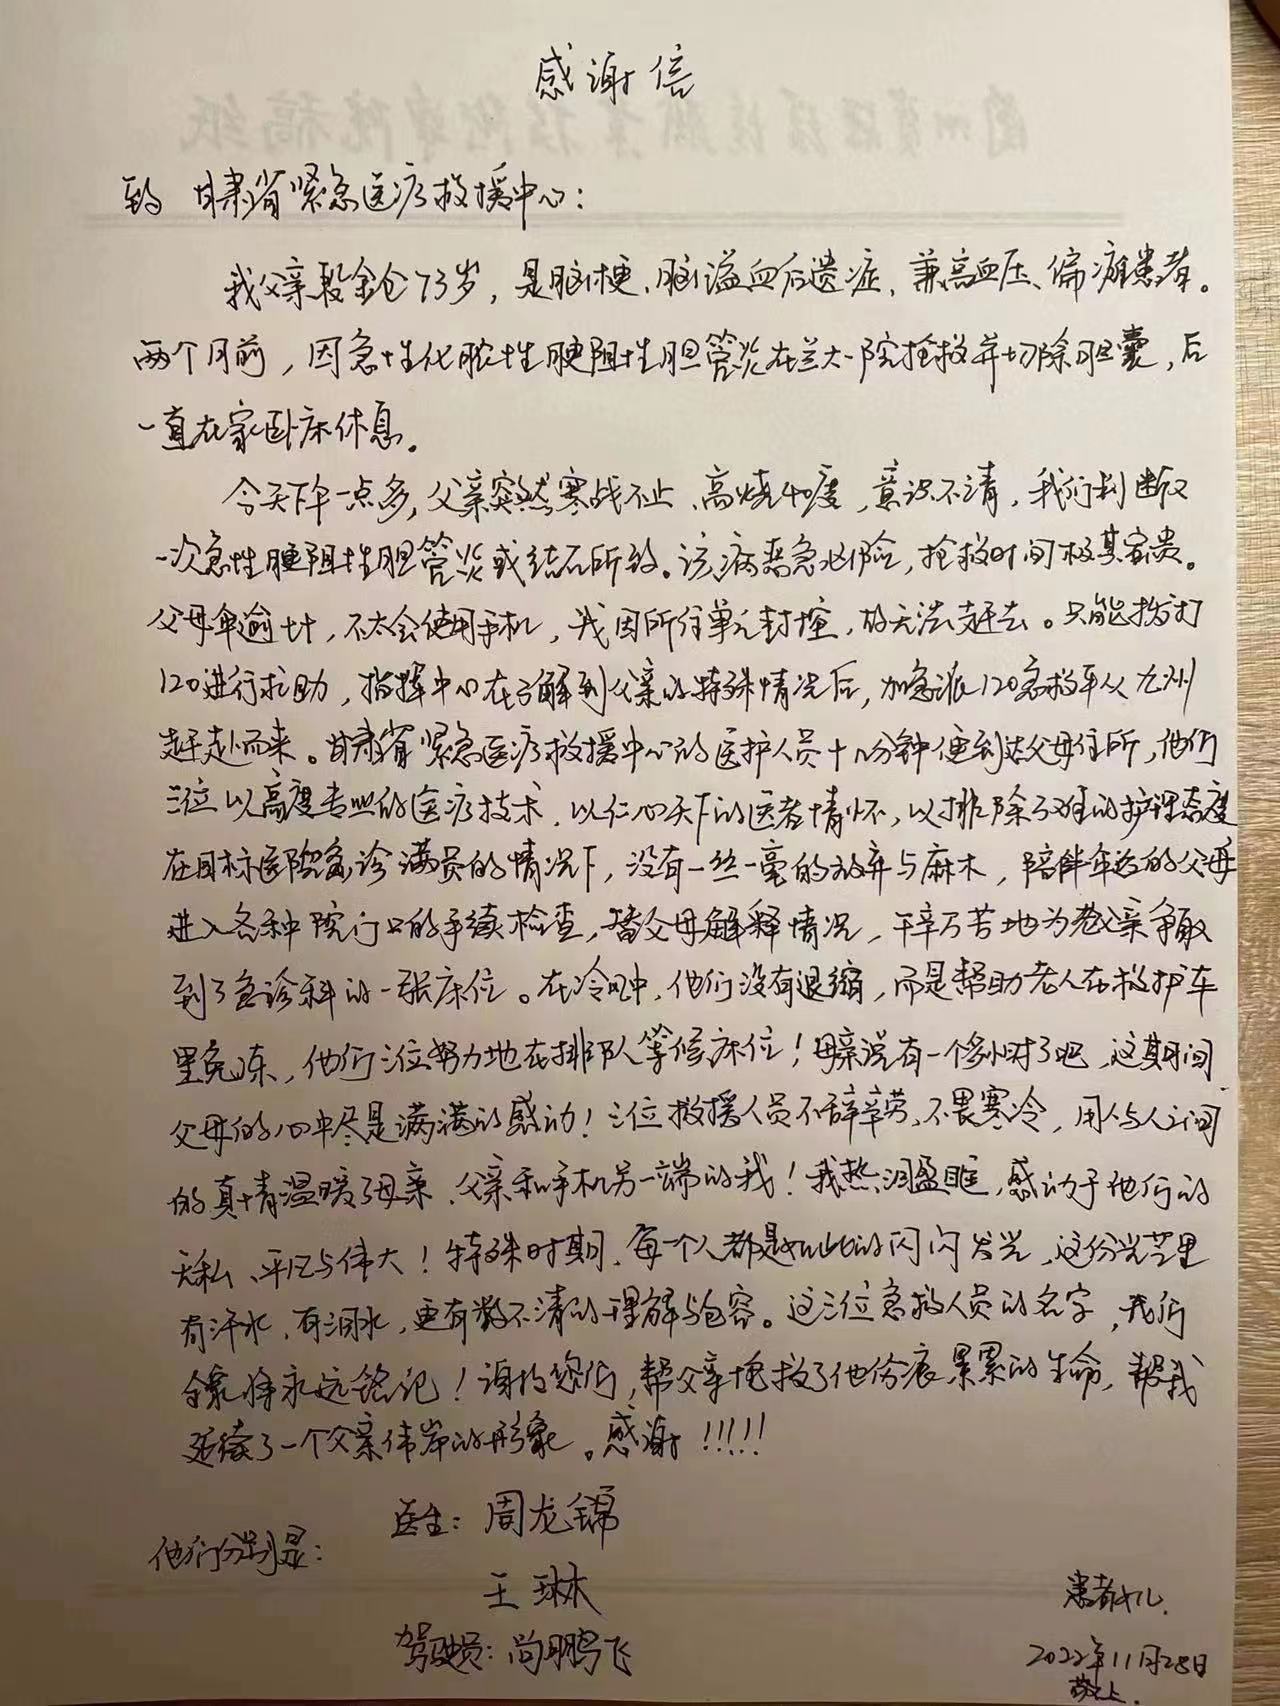 感谢信
致 甘肃省紧急医疗救援中心：
我父亲段金仓73岁，是脑梗、脑溢血后遗症、兼高血压、偏瘫患者。
两个月前，因急性化脓性梗阻性胆管炎在兰大一院抢救并切除胆囊，后
一直在家卧床休息。
今天下午一点多，父亲突然寒战不止、高烧40度，意识不清，我们判断又
一次急性梗阻性胆管炎或结石所致。该病恶急凶险，抢救时间极其宝贵。
父母年逾七十，不太会使用手机，我因所住单元封控，故无法赶去。只能拨打
120进行求助，指挥中心在了解到父亲的特殊情况后，加急派120急救车从九州
赶赴而来。甘肃省紧急医疗救援中心的医护人员十几分钟便到达父母住所，他们
三位以高度专业的医疗技术，以仁心天下的医者情怀，以排除万难的护理态度
在目标医院急诊满员的情况下，没有一丝一毫的放弃与麻木，陪伴年迈的父母
进入各种院门口的手续检查，替父母解释情况，千辛万苦地为老父亲争取
到了急诊科的一张床位。在冷风中，他们没有退缩，而是帮助老人在救护车
里免冻，他们三位努力地在排队等候床位！母亲说有一个多小时了吧，这期间
父母的心中尽是满满的感动！三位救援人员不辞辛劳、不畏寒冷，用人与人之间
的真情温暖了母亲、父亲和手机另一端的我！我热泪盈眶，感动于他们的
无私、平凡与伟大！特殊时期，每一个人都是如此的闪闪发光，这份光芒里
有汗水，有泪水，更有数不清的理解与包容。这三位急救人员的名字，我们
全家将永远铭记！谢谢您们，帮父亲挽救了他伤痕累累的生命，帮我
延续了一个父亲伟岸的形象。感谢！！！！！
医生：周龙锦
他们分别是：
王琳
患者女儿
驾驶员：尚鹏飞
2022年11月28日
敬上